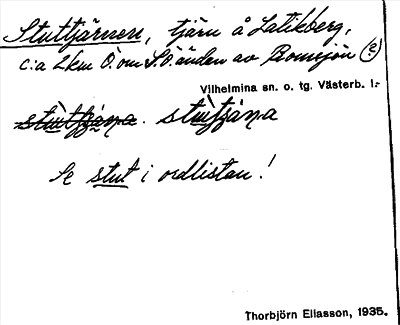 Stuttjärnen, tjärn å Latikberg,
c:a 2 km Ö. om S.Ö. änden av Bomsjön (?)
Vilhelmina sn. o. tg. Västerb. l.
stùtʃána
Se stut i ordlistan!
Thorbjörn Eliasson, 1935.